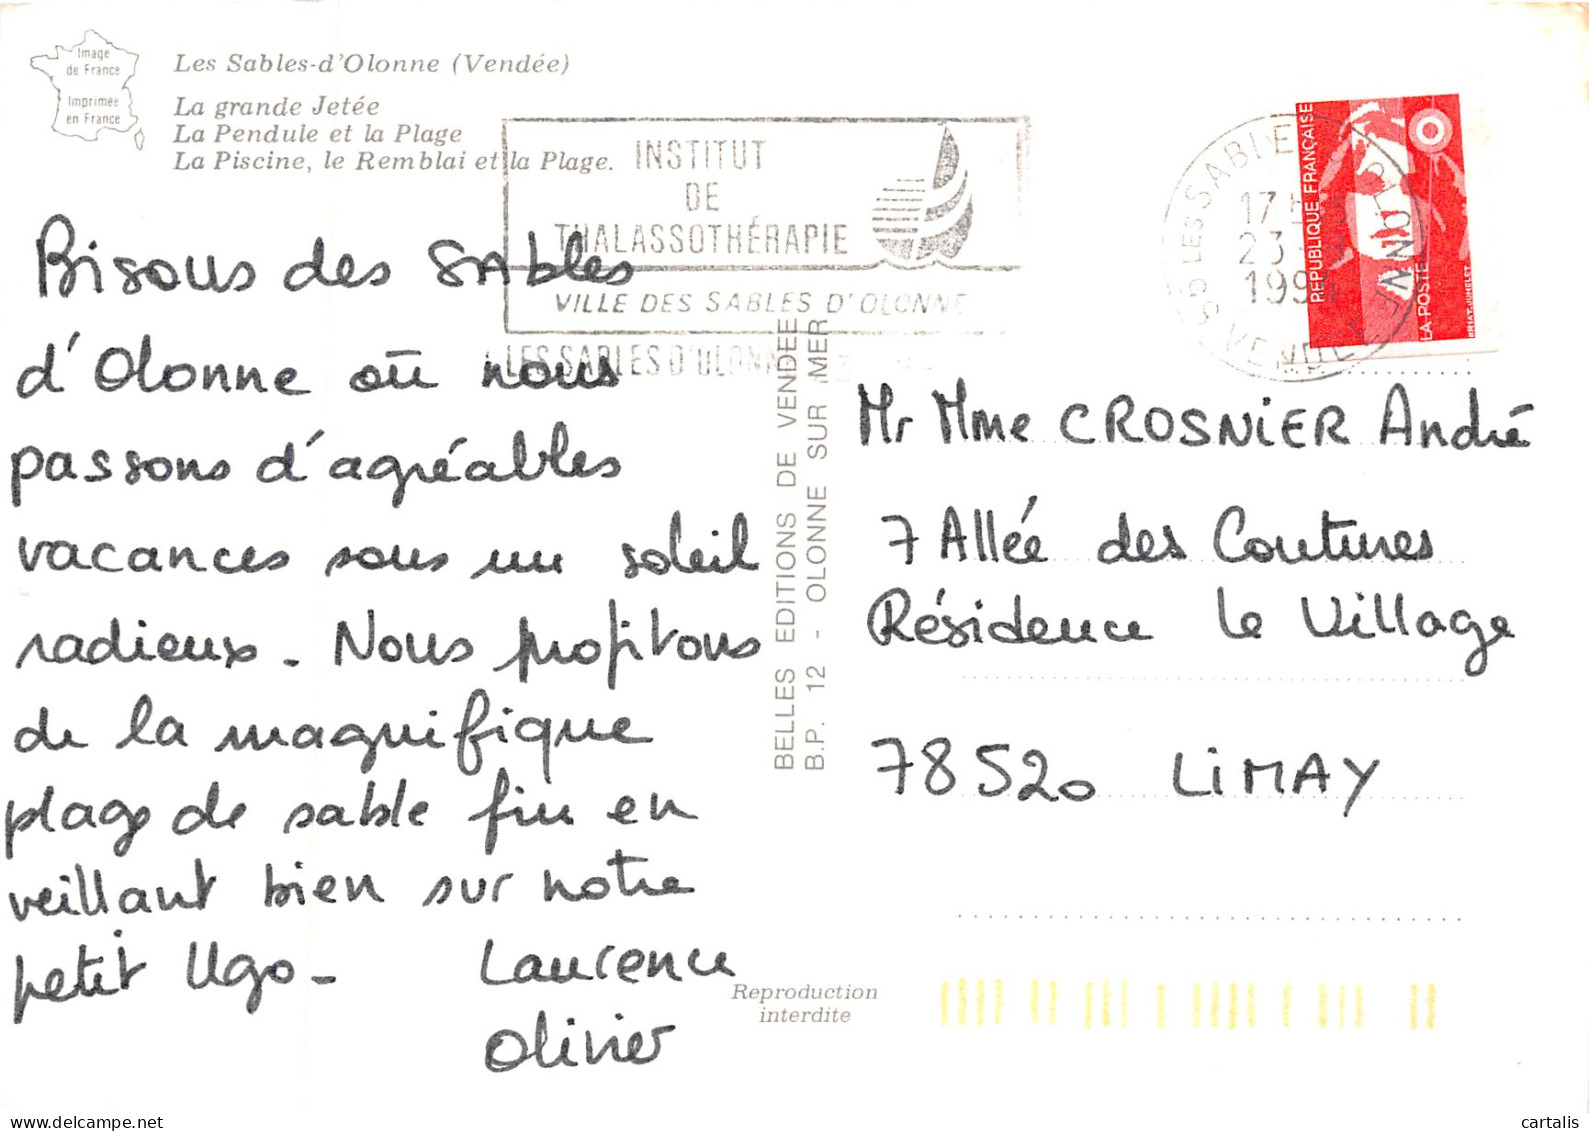 Image
de France
Imprimée
en France
Les Sables-d'Olonne (Vendée)
La grande Jetée
La Pendule et la Plage
La Piscine, le Remblai et la Plage.
INSTITUT
DE
THALASSOTHÉRAPIE
VILLE DES SABLES D'OLONNE
LES SABLES D'OLONNE
85 LES SABLES D'OLONNE VENDEE
17
23
199
REPUBLIQUE FRANÇAISE
LA POSTE
BRIAT-JUMELET
Bisous des SAbles
d'Olonne où nous
passons d'agréables
vacances sous un soleil
radieux. Nous profitons
de la magnifique
plage de sable fin en
veillant bien sur notre
petit Ugo -
Laurence
Olivier
BELLES EDITIONS DE VENDEE
B.P. 12 - OLONNE SUR MER
Mr Mme CROSNiER André
7 Allée des Coutures
Résidence le Village
78520 LiMAY
Reproduction
interdite
cartalis